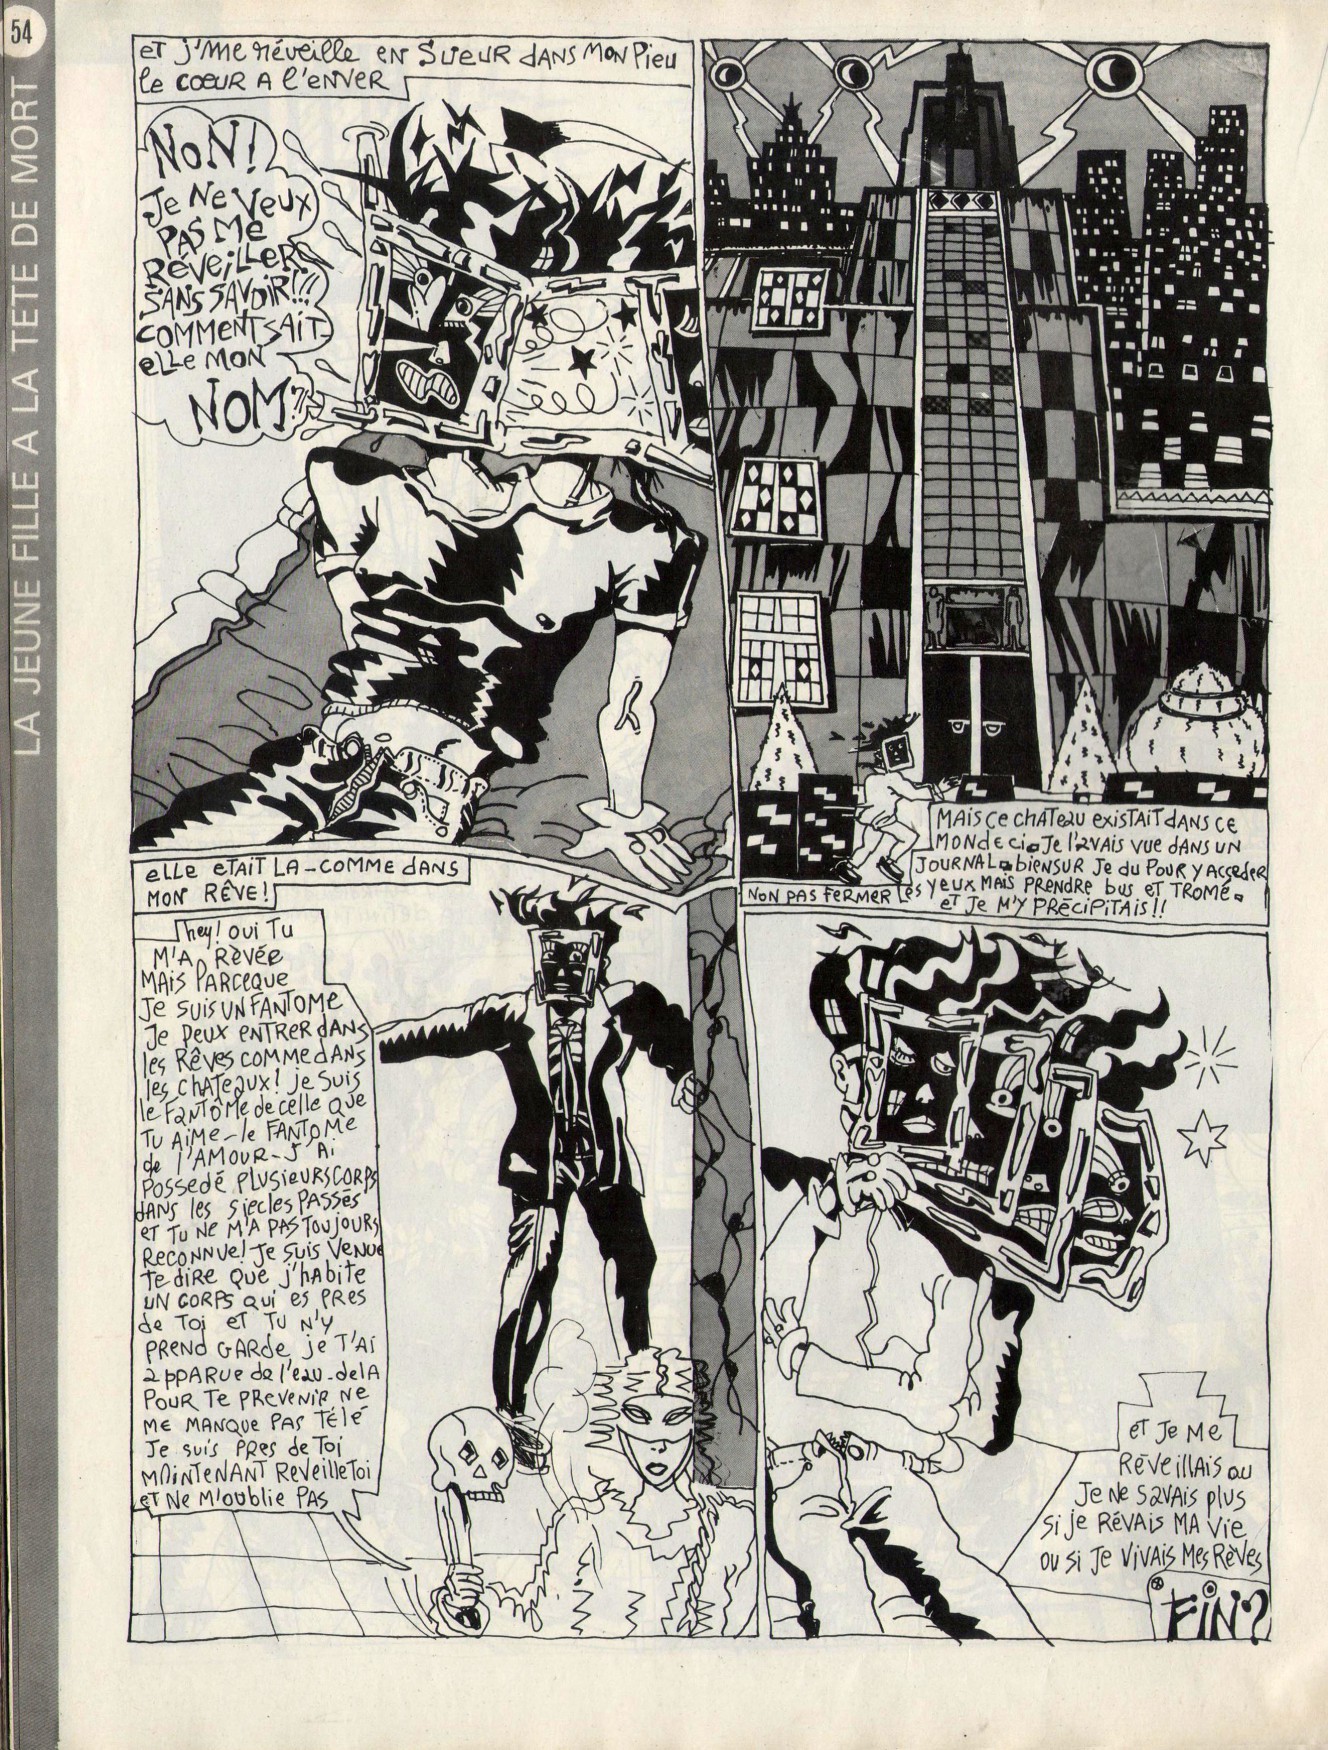 54
LA JEUNE FILLE A LA TETE DE MORT
et j'me réveille en Sueur dans mon Pieu
le cœur a l'enver
NON!
Je Ne Veux
PAS Me
RéveiLLER
SANS SAVOIR!!!
COMMENT SAIT
elle MON
NOM?
MAIS Ce CHATeau EXISTAIT DANS Ce
MONDe Ci. Je l'avais VUe DANS UN
JOURNAL. BIENSUR Je du Pour y Acceder
NON PAS FERMER les Yeux MAIS PRENDRE bus et TROMé.
et Je M'y PRéCiPiTAiS!!
elle ETAIT LA - COMME DANS
MON RÊVE!
hey! oui Tu
M'A RèvéE
MAIS PARCEQUE
Je SUIS UN FANTOME
Je Peux ENTRER DANS
les Rêves comme DANS
les CHATEAUX! je Suis
le FANTÔMe de celle que
Tu AiMe - le FANTOMe
de l'AMOUR - J'Ai
POSSEDé PLUSIEURS CORPS
DANS les Siecles PASSéS
et TU Ne M'A PAS TOUJOURS
RECONNUE! Je Suis VENUe
te dire que j'HABite
UN CORPS qui es PRES
de Toi et TU N'Y
PREND GARDe je T'Ai
apPARUe de l'eau-delA
POUR Te PReVENIR Ne
Me MANQUe PAS TéLé
Je suis PRES de Toi
MAINTENANT Reveille Toi
et Ne M'oublie PAS
et Je Me
RéVeillAis ou
Je Ne SAVAIS plus
Si je RêvAis MA Vie
ou si Je ViVAis Mes Rêves
FiN?